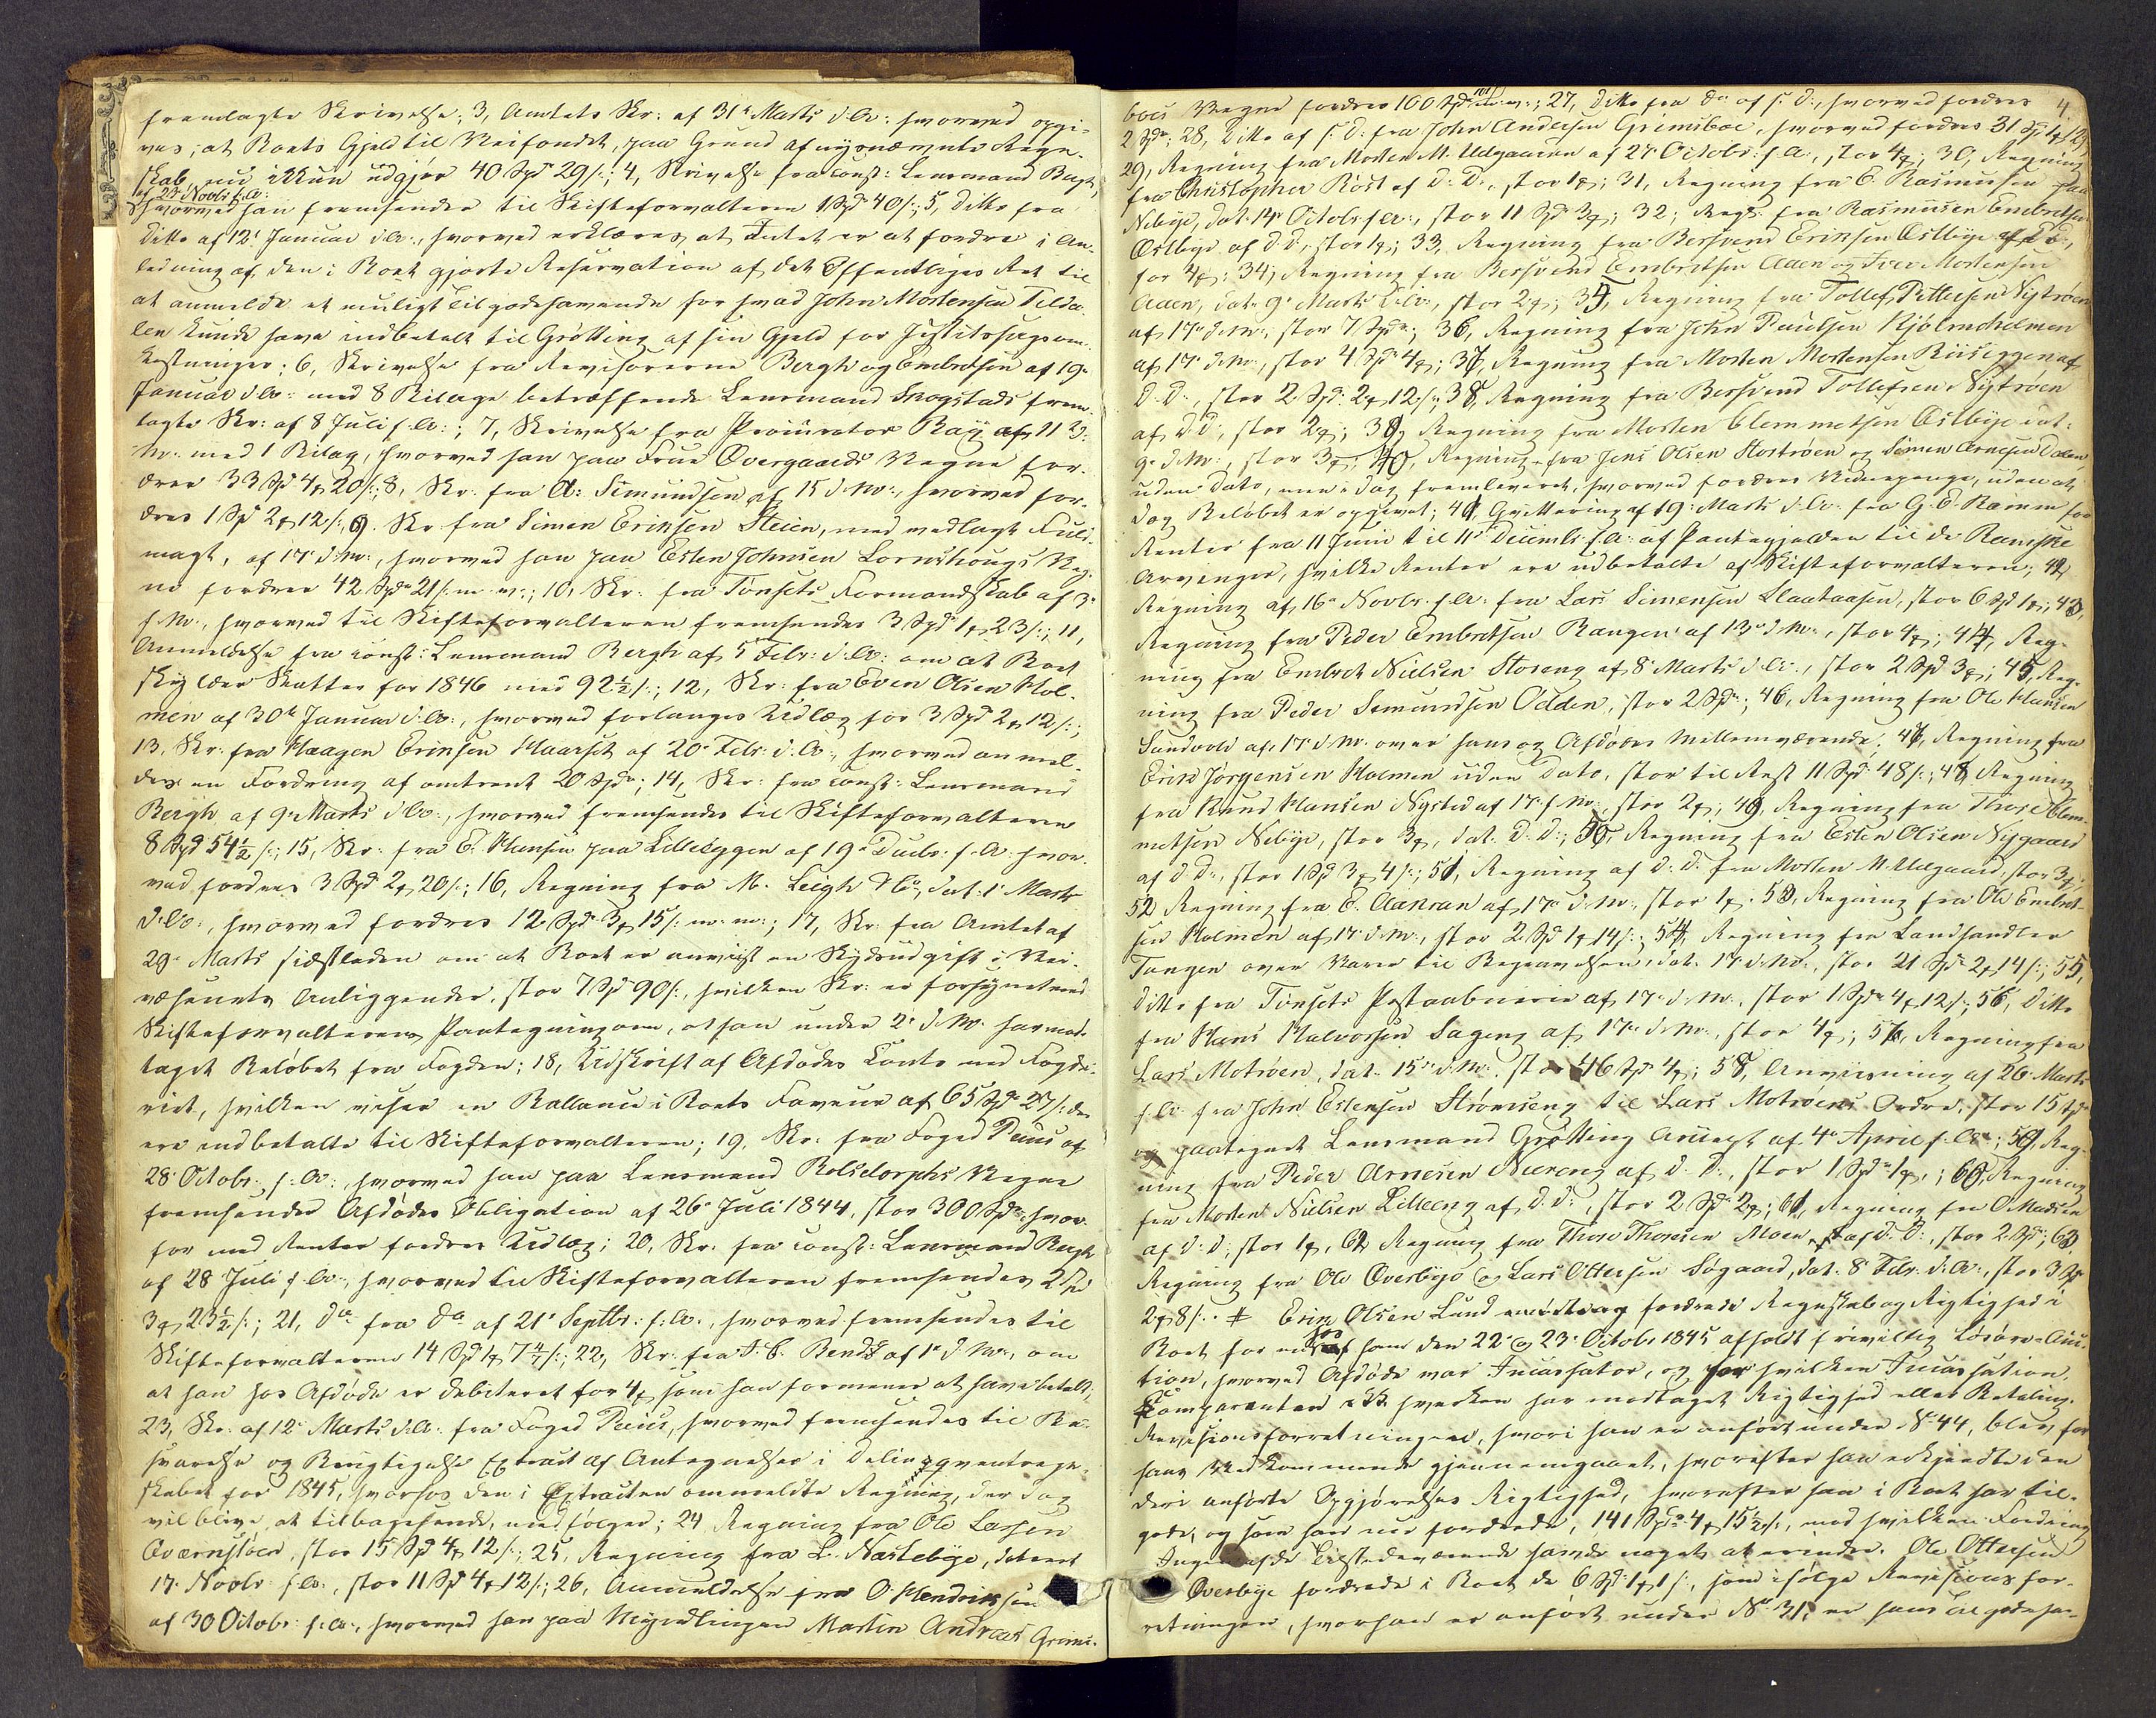 fremlagte Skrivelse; 3, Amtets Skr: af 31t Marts d.A: hvorved opgi-
ves, at Boets Gjeld til Veifondet, paa Grund af nysnævnte Regn-
skab nu ikkun udgjør 40 Spd 29 s; 4, Skrivelse fra const: Lensmand Bergh,
af 23 Novbr f.A:
hvorved han fremsender til Skifteforvalteren 1 Spd 40 s; 5, Ditto fra
Ditto af 12t Januar d.A:, hvorved erklæres at Intet er at fordre i An-
ledning af den i Boet gjorte Reservation af det Offentliges Ret til
at anmelde et muligt Tilgodehavende for hvad John Mortensen Telda-
len kunde have indbetalt til Grøtting af sin Gjeld for Justitssagsom-
kostninger; 6, Skrivelse fra Revisorerne Bergh og Embretsen af 19de
Januar d.A: med 8 Bilage betræffende Lensmand Skogstads frem-
lagte Skr: af 8 Juli f.A:; 7, Skrivelse fra Procurator Bay af 11 d:
M: med 1 Bilag, hvorved han paa Frue Overgaards Vegne for-
drer 33 Spd 4 20 s; 8, Skr: fra A: Simundsen af 15 d.M:, hvorved for-
dres 1 Spd 2 12 s; 9. Skr fra Simen Eriksen Steien, med vedlagt Fuld-
magt, af 17 d.M:, hvorved han paa Esten Johnsen Lornthougs Veg-
ne fordrer 42 Spd 21 s m. v.; 10, Skr: fra Tønsets Formandskab af 3de
f.M:, hvorved til Skifteforvalteren fremsendes 3 Spd 1 23 s; 11,
Anmeldelse fra const: Lensmand Bergh af 5 Febr: d.A: om at Boet
skylder Skatter for 1846 med 92½ s; 12, Skr: fra Even Olsen Hol-
men af 30te Januar d.A:, hvorved forlanges Udlæg for 3 Spd 2 12 s;
13, Skr: fra Haagen Eriksen Haarset af 20de Febr: d.A:, hvorved anmel-
des en Fordring af omtrent 20 Spd; 14, Skr: fra const: Lensmand
Bergh af 9de Marts d.A:, hvorved fremsendes til Skifteforvalteren
8 Spd 54½ s; 15, Skr: fra E. Hansen paa Lilleeggen af 19de Decbr: f.A: hvor-
ved fordres 3 Spd 2 20 s; 16, Regning fra M. Leigh & Co, dat: 1t Marts
d.A:, hvorved fordres 12 Spd 3 15 s m. m:; 17, Skr: fra Amtet af
29de Marts sidstleden om at Boet er anviist en Skydsudgift i Vei-
væsenets Anliggender, stor 7 Spd 90 s, hvilken Skr: er forsynet med
Skifteforvalterens Paategning om, at han under 2de d.M: har mod-
taget Beløbet fra Fogden; 18, Udskrift af Afdødes Conto med Fogde-
riet, hvilken viser en Ballance i Boets Faveur af 65 Spd 27 s der
ere indbetalte til Skifteforvalteren; 19, Skr: fra Foged Paus af
28 Octobr: f:A:, hvorved han paa Lensmand Rolsdorphs Vegne
fremsender Afdødes Obligation af 26de Juli 1844, stor 300 Spd, hvor-
for med Renter fordres Udlæg; 20, Skr: fra const: Lensmand Bergh
af 28 Juli f.A:, hvorved til Skifteforvalteren fremsendes 2 Spd
3 23½ s; 21, Do fra Do af 21t Septbr: f:A:, hvorved fremsendes til
Skifteforvalteren 14 Spd 1 7 s; 22, Skr: fra J. C. Bends af 1t d.M:, om
at han hos Afdøde er debiteret for 4 som han formener at have betalt;
23, Skr: af 12te Marts d.A: fra Foged Paus, hvorved fremsendes til Be-
svarelse og Berigtigelse Extract af Antegnelser i Delinqventregn-
skabet for 1845, hvorhos den i Extracten ommeldte Regning, der dog
vil blive at tilbagesende, medfølger; 24 Regning fra Ole Larsen
Qværnstøen, stor 15 Spd 4 12 s; 25, Regning fra L. Nastebye, dateret
17. Novbr: f.A:, stor 11 Spd 4 12 s; 26, Anmeldelse fra O. Hendriksen
af 30 Octobr: f.A:, hvorved han paa Myndlingen Martin Andreas Grims-
4.
boes Vegne fordrer 100 Spd m.v.; 27, Ditto fra Do af s. D:, hvorved fordres
2 Spd; 28, Ditto af s: D: fra John Andersen Grimsboe, hvorved fordres 31 Spd
29, Regning fra Morten M. Udgaarden af 27 Octobr: f.A:, stor 4; 30, Regning
fra Christopher Röst af D: D:, stor 1; 31, Regning fra E. Rasmusen paa
Nebye, dat. 14de Octobr f.A:, stor 11 Spd 3; 32; Regn: fra Rasmusen Embretsen
Østbye af d.d., stor 1; 33, Regning fra Bersvend Eriksen Østbye af d.d.,
for 4; 34, Regning fra Bersvend Embretsen Aaen og Iver Mortensen
Aaen, dat: 9de Marts d.A:, stor 2; 35, Regning fra Tollef Pettersen Nytrøen
af 17de d.M:, stor 7 Spd; 36, Regning fra John Paulsen Kjølmoholmen
af 17 d.M:, stor 4 Spd 4; 37, Regning fra Morten Mortensen Riiseggen af
D. D:, stor 2 Spd 2 12 s; 38, Regning fra Bersvend Tollefsen Nytrøen
af D.D:, stor 2; 39, Regning fra Morten Clemmetsen Østbye dat:
9de d.M:, stor 3; 40, Regning fra Jens Olsen Hostrøen og Simen Arnesen Dalen,
uden Dato, men i Dag fremleveret, hvorved fordres Vidnepenge, uden at
dog Beløbet er opgivet; 41, Qvittering af 19. Marts d.A: fra G. E. Ramm for
Renter fra 11 Juni til 11te Decembr f.A: af Pantegjelden til de Ramske
Arvinger, hvilke Renter ere udbetalte af Skifteforvalteren; 42,
Regning af 16de Novbr. f.A: fra Lars Simensen Slaataasen, stor 6 Spd 1; 43,
Regning fra Peder Embretsen Rangen af 13de d.M:, stor 4; 44, Reg-
ning fra Embret Nielsen Storeng af 8 Marts d.A:, stor 2 Spd 3; 45, Reg-
ning fra Peder Semundsen Odden, stor 2 Spd; 46, Regning fra Ole Hansen
Sandvold af 17 d.M. over hans og Afdødes Mellemværende; 47, Regning fra
Erik Jørgensen Holmen uden Dato, stor til Rest 11 Spd 48 s; 48, Regning
fra Knud Hansen Nysted af 17 f.M:, stor 2; 49, Regning fra Thore Clem-
metsen Nebye, stor 3, dat. D. D:; 50, Regning fra Esten Olsen Nygaard
af d. D:, stor 1 Spd 3 4 s; 51, Regning af d: D. fra Morten M. Udgaard, stor 3;
52 Regning fra E. Aanran af 17de d.M:, stor 1; 53, Regning fra Ole Embret-
sen Holmen af 17 d.M:, stor 2 Spd 1 14 s; 54, Regning fra Landhandler
Tangen over Varer til Begravelsen, dat. 17 d.M:, stor 21 Spd 2 14 s; 55,
Ditto fra Tønsets Postaabnerie af 17de d.M:, stor 1 Spd 4 12 s; 56, Ditto
fra Hans Halvorsen Sageng af 17de d.M:, stor 4; 57, Regning fra
Lars Motrøen, dat. 15de d.M:, stor 46 Spd 4; 58, Anviisning af 26. Marts
f.A: fra John Estensen Strømseng til Lars Motrøens Ordre, stor 15 Spd
og paategnet Lensmand Grøtting Accept af 4de April f.A:; 59, Reg-
ning fra Peder Arnesen Nereng af d. D:, stor 1 Spd 1; 60, Regning
fra Morten Nielsen Lilleeng af d.D:, stor 2 Spd 2; 61, Regning fra O Madsen
af d: D:, stor 1; 62, Regning fra Thore Thoresen Moen, af d. D:, stor 2 Spd; 63,
Regning fra Ole Øverbye og Lars Ottersen Søgaard, dat. 8 Febr. d.A:, stor 3 Spd
2 8 s. # Erik Olsen Lund fordrede Regnskab og Rigtighed i
Boet for en hos ham den 22 og 23 Octobr 1845 afholdt frivillig Løsøre-Auc-
tion, hvorved Afdøde var Incassator, og for hvilken Incassation,
Comparenten hverken har modtaget Rigtighed eller Betaling.
Revisionsforretningen, hvori han er anført under No 44, blev for
hans Vedkommende gjennemgaaet, hvorefter han erkjendte den
deri anførte Opgjørelses Rigtighed, hvorefter han i Boet har til-
gode, og som han nu fordrede, 141 Spd 4 15½ s, mod hvilken Fordring
Ingen af de Tilstedeværende havde noget at erindre. Ole Ottersen
Øverbye fordrede i Boet de 6 Spd 1 1 s, som ifølge Revisions for-
retningen, hvor han er anført under No 31, er hans Tilgodeha-